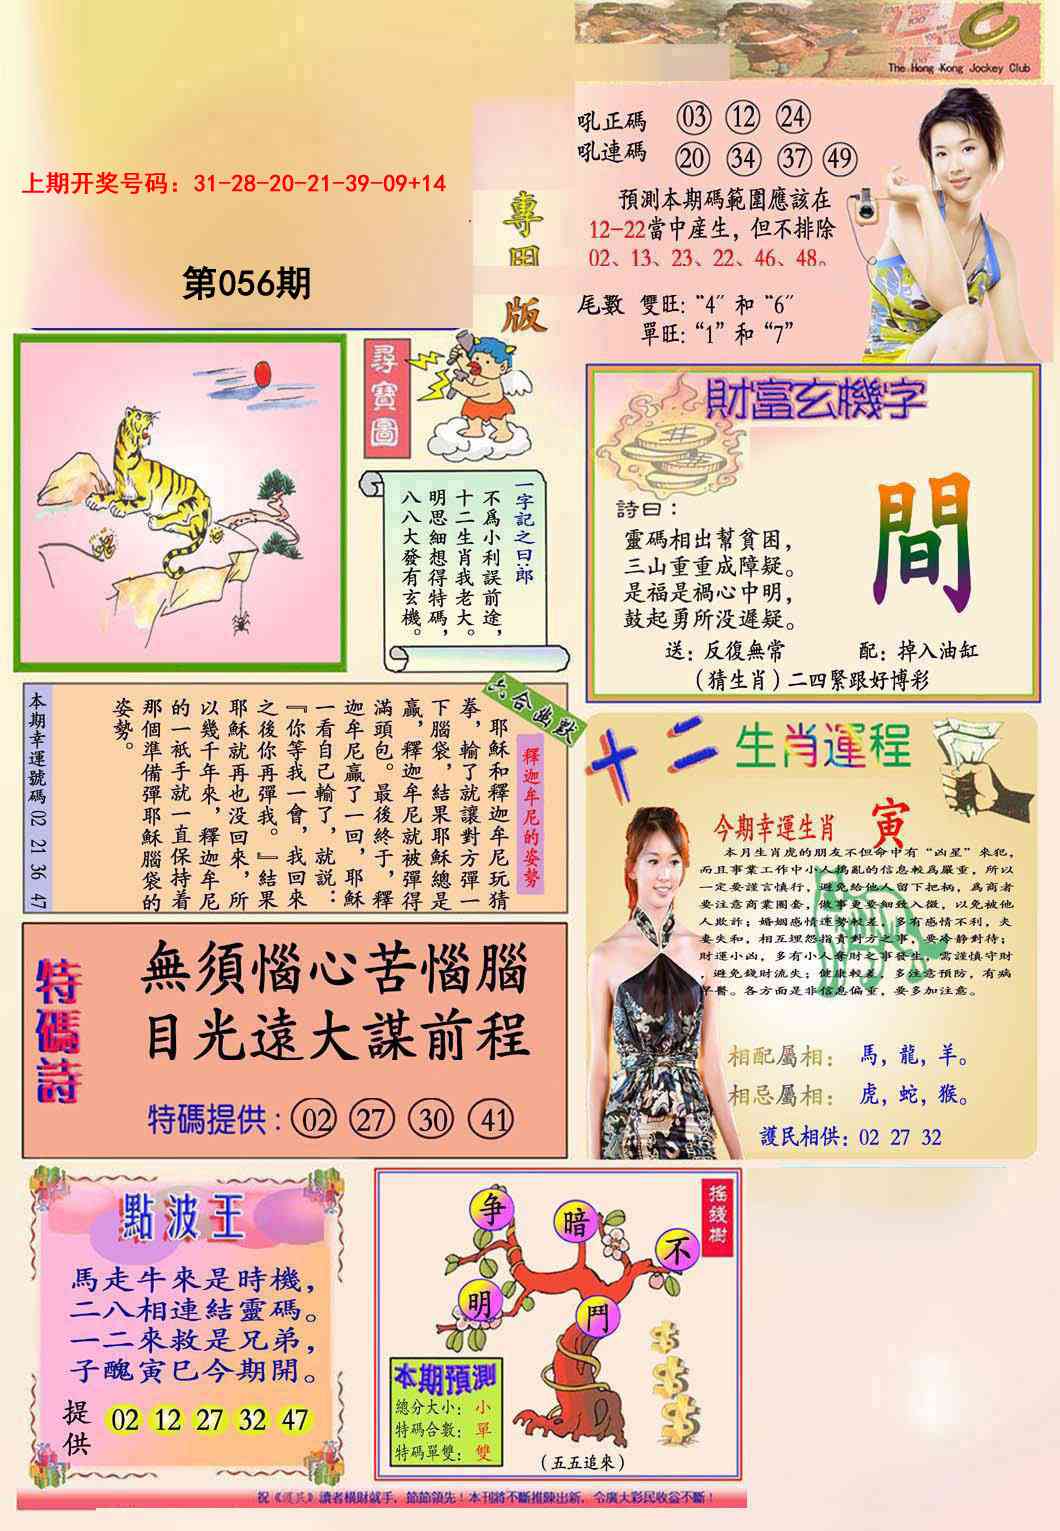 The Hong Kong Jockey Club
吼正碼 03 12 24
吼連碼 20 34 37 49
預測本期碼範圍應該在
12-22當中産生，但不排除
02、13、23、22、46、48。
尾數 雙旺：“4”和“6”
單旺：“1”和“7”
上期开奖号码：31-28-20-21-39-09+14
第056期
專門版
尋寶圖
一字記之曰：郎
不爲小利誤前途，
十二生肖我老大。
明思細想得特碼，
八八大發有玄機。
財富玄機字
詩曰：
靈碼相出幫貧困，
三山重重成障疑。
是福是禍心中明，
鼓起勇所没遲疑。
間
送：反復無常 配：掉入油缸
（猜生肖）二四緊跟好博彩
本期幸運號碼 02 21 36 47
六合幽默
釋迦牟尼的姿勢
耶穌和釋迦牟尼玩猜
拳，輸了就讓對方彈一
下腦袋，結果耶穌總是
贏，釋迦牟尼就被彈得
滿頭包。最後終于，釋
迦牟尼贏了一回，耶穌
一看自己輸了，就説：
『你等我一會，我回來
之後你再彈我。』結果
耶穌就再也没回來，所
以幾千年來，釋迦牟尼
的一祇手就一直保持着
那個準備彈耶穌腦袋的
姿勢。
十二生肖運程
今期幸運生肖 寅
本月生肖虎的朋友不但命中有“凶星”來犯，
而且事業工作中小人搗亂的信息較爲嚴重，所以
一定要謹言慎行，避免給他人留下把柄，爲商者
要注意商業圈套，做事更要細致入微，以免被他
人欺詐；婚姻感情運勢較差，多有感情不利，夫
妻失和，相互埋怨指責對方之事，要冷静對待；
財運小凶，多有小人奪財之事發生，需謹慎守財
，避免錢財流失；健康較差，多注意預防，有病
早醫。各方面是非信息偏重，要多加注意。
相配屬相：馬，龍，羊。
相忌屬相：虎，蛇，猴。
護民相供：02 27 32
特碼詩
無須惱心苦惱腦
目光遠大謀前程
特碼提供：02 27 30 41
點波王
馬走牛來是時機，
二八相連結靈碼。
一二來救是兄弟，
子醜寅巳今期開。
提供 02 12 27 32 47
搖錢樹
争 暗 不
明 鬥
本期預測
總分大小：小
特碼合數：單
特碼單雙：雙
（五五追來）
祝《護民》讀者橫財就手，節節領先！本刊將不斷推陳出新，令廣大彩民收益不斷！